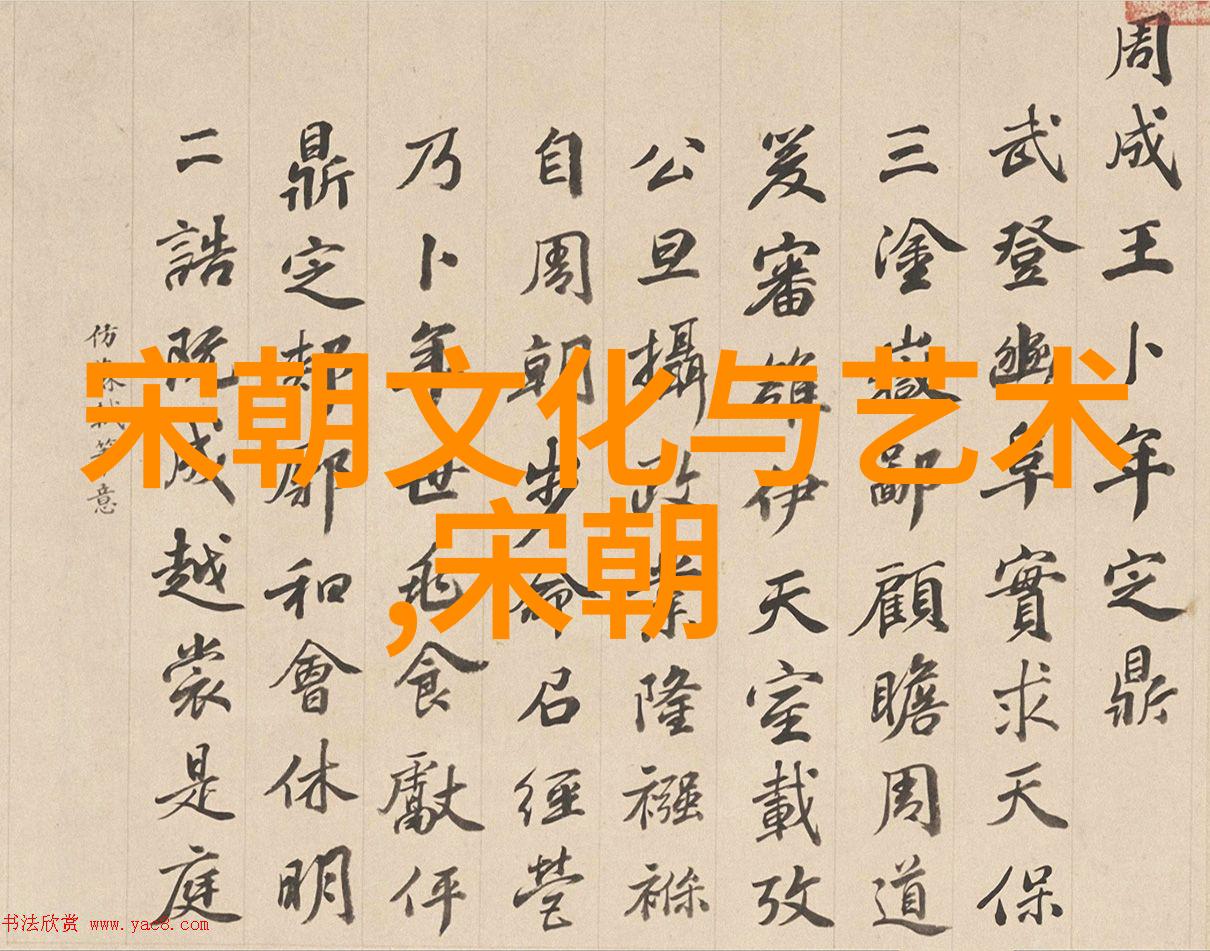 周成王卜年定鼎
武登豳阜實求天保
三塗嶽鄙顧瞻周道
爰審雒伊天室載攷
公旦攝政業隆襁褓
自周朝步命召經營
乃卜年世兆食獻伻
鼎定郟鄏和會休明
二誥既成越裳是庭
仿意
宋朝文化与艺术
,宋朝
书法欣赏 www.yac8.com